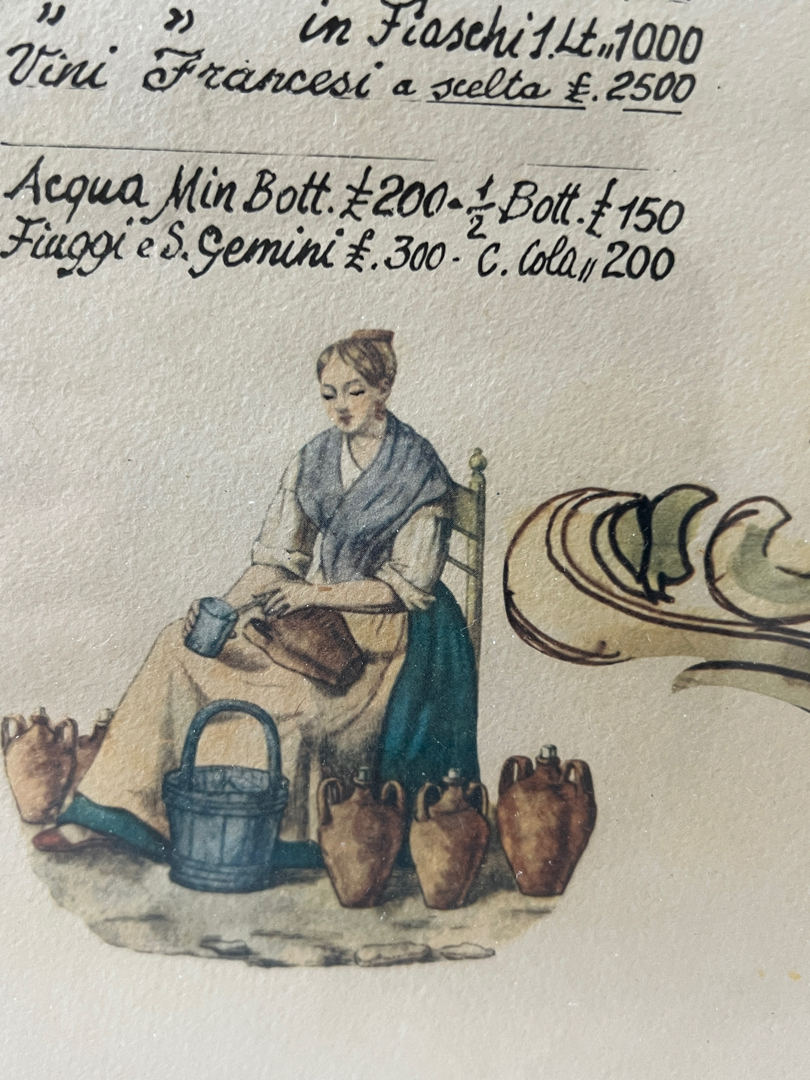 " " in Fiaschi 1.Lt " 1000
Vini Francesi a scelta £. 2500
Acqua Min Bott. £ 200 - 1/2 Bott. £ 150
Fiuggi e S. Gemini £. 300 - C. Cola " 200